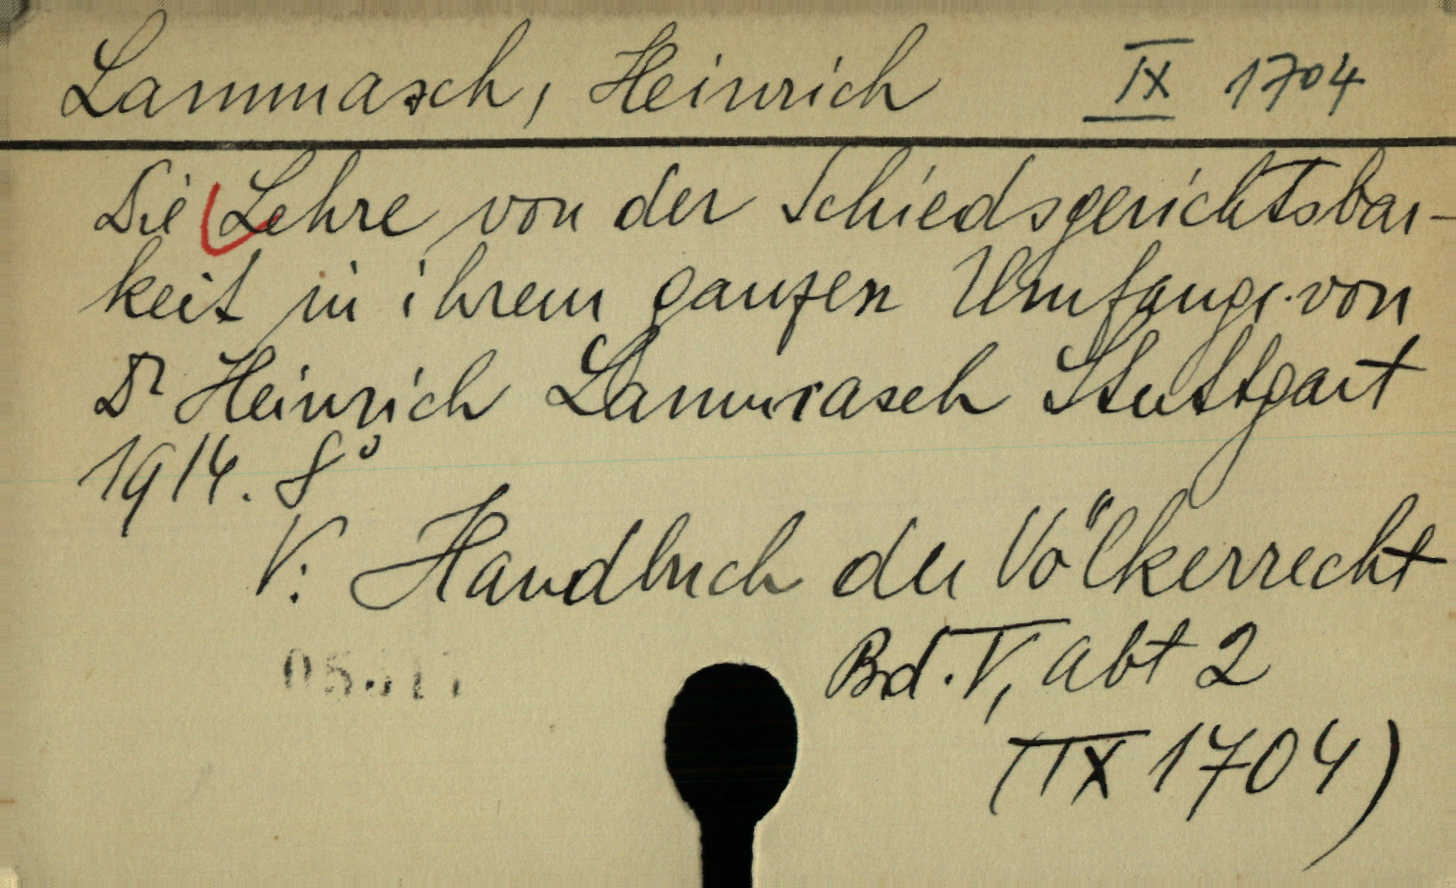 Lammasch, Heinrich IX 1704
Die Lehre von der Schiedsgerichtsbar-
keit in ihrem ganzen Umfange von
Dr Heinrich Lammasch Stuttgart
1914. 8°
V: Handbuch des Völkerrecht
Bd. V, abt 2
(IX 1704)